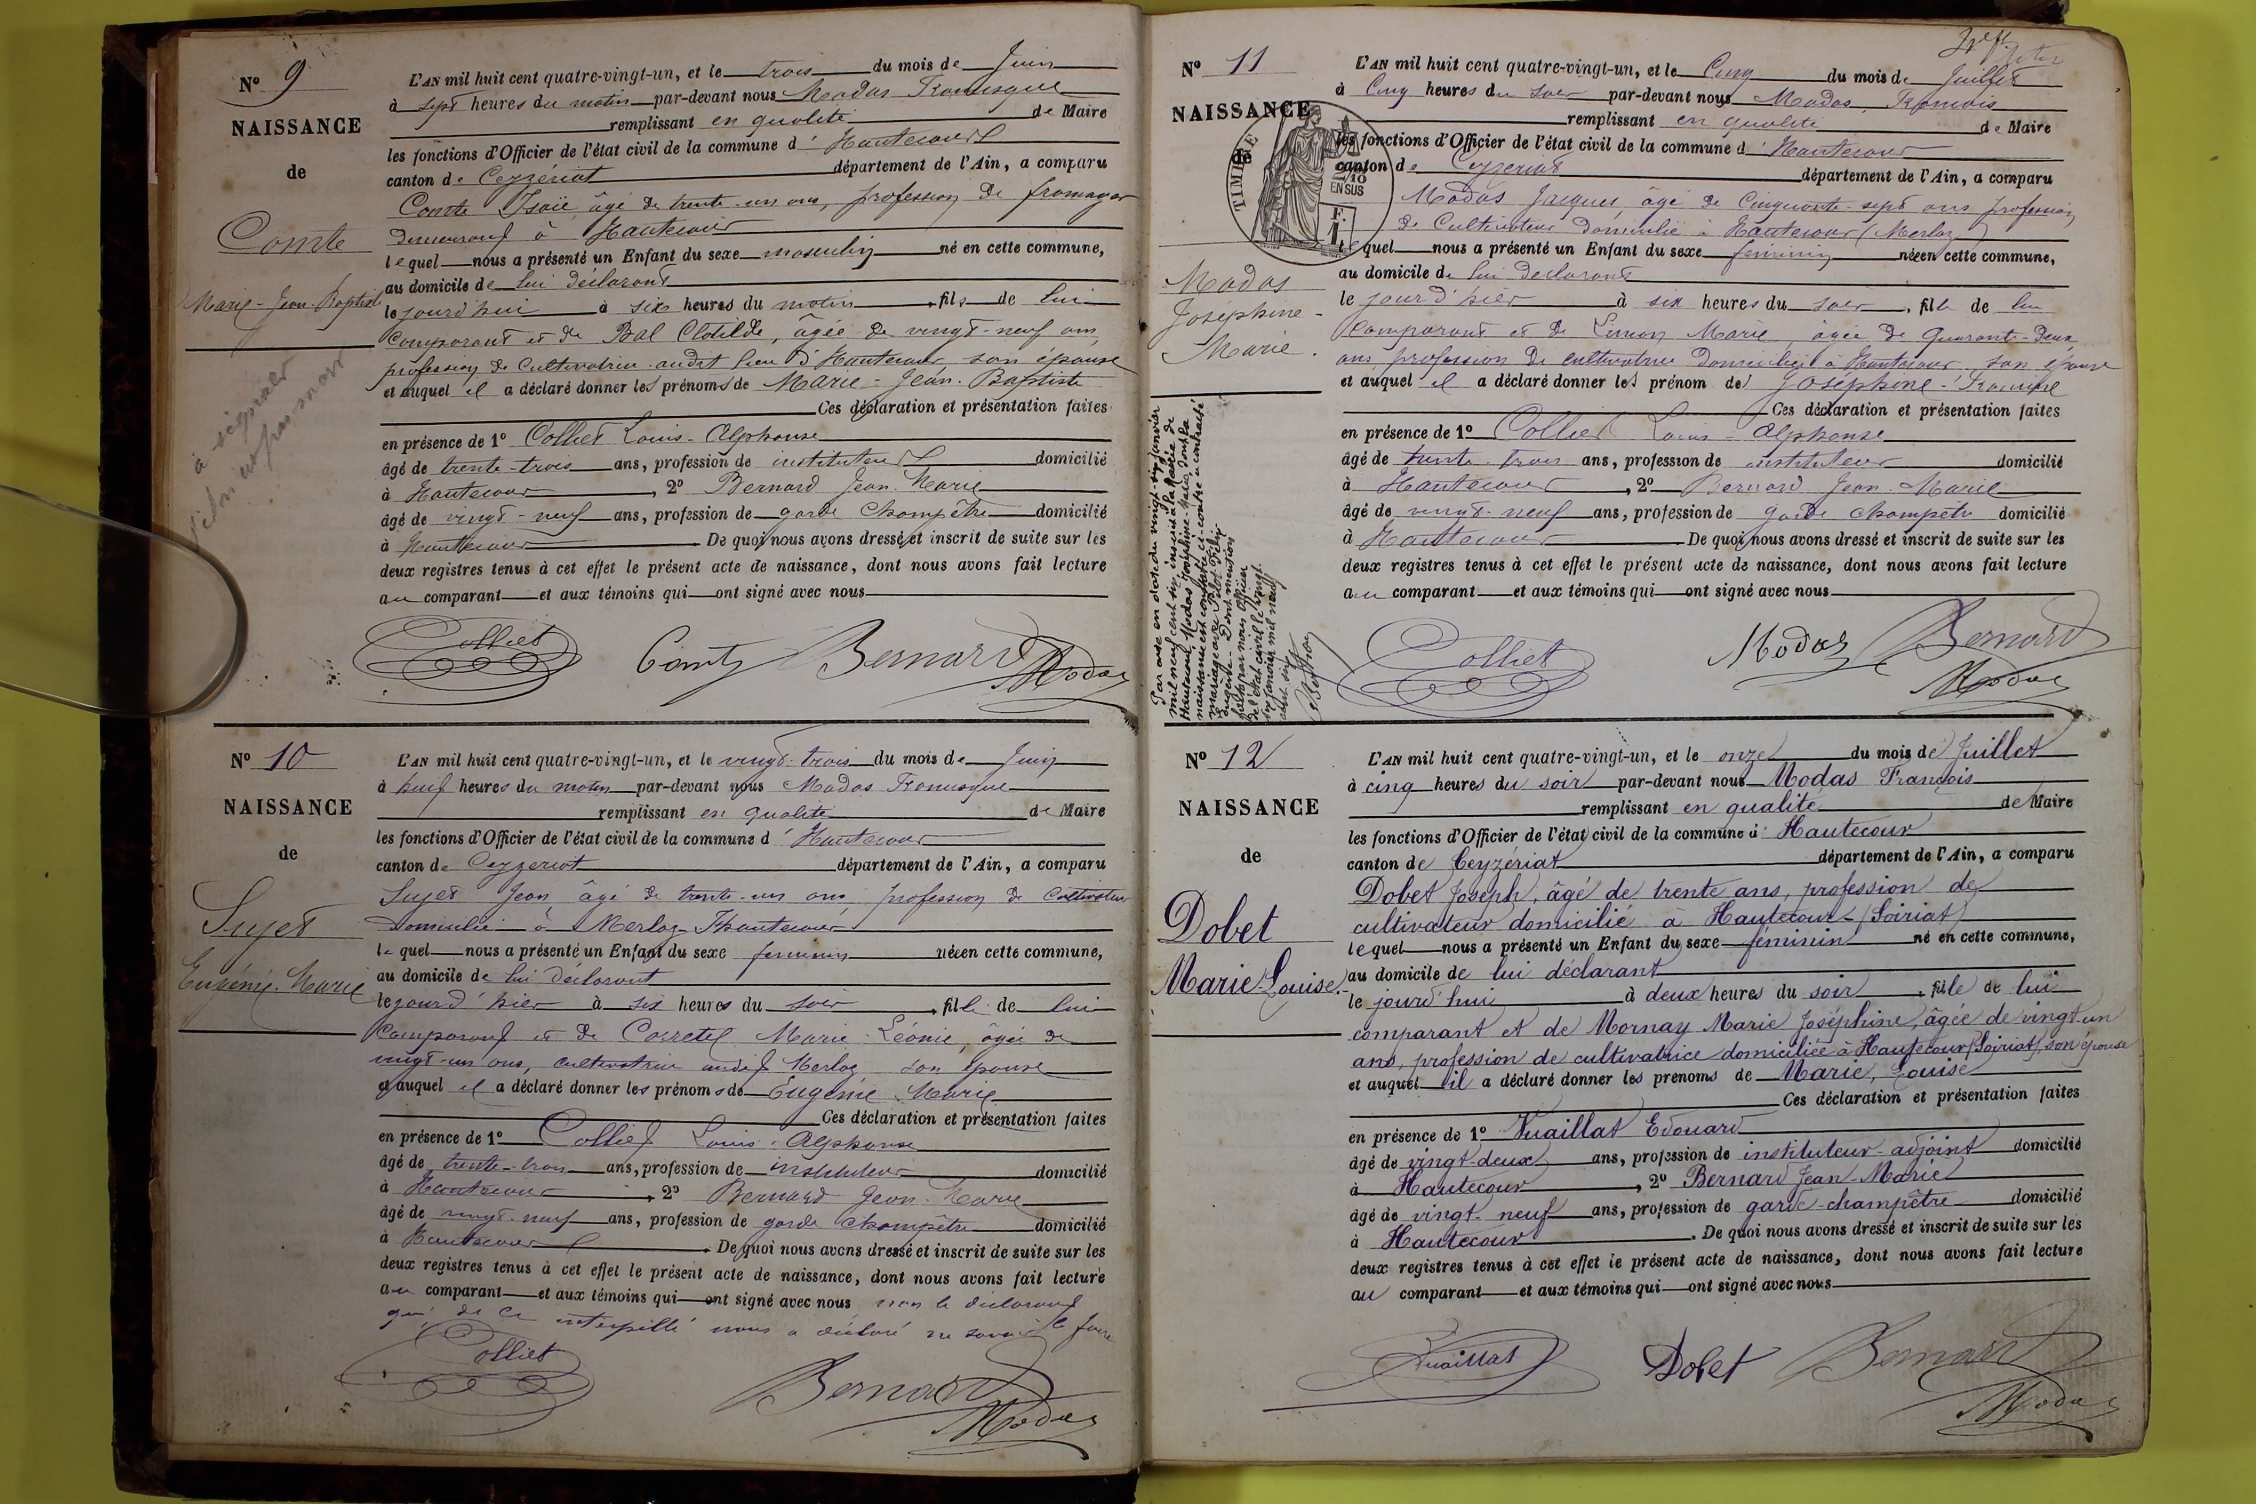 N° 9
NAISSANCE
de
Comte
Marie-Jean-Baptiste
L'AN mil huit cent quatre-vingt-un, et le trois du mois de Juin
à sept heures du matin par-devant nous Modas
remplissant en qualité de Maire
les fonctions d'Officier de l'état civil de la commune d' Hautecour
canton de Ceyzériat département de l'Ain, a comparu
Comte Isaïe, âgé de trente-un ans, profession de fromager
demeurant à Hautecour
lequel nous a présenté un Enfant du sexe masculin né en cette commune,
au domicile de lui déclarant
le jourd'hui à six heures du matin, fils de lui
comparant et de Bal Clotilde, âgée de vingt-neuf ans,
profession de Cultivatrice audit lieu d'Hautecour son épouse
et auquel il a déclaré donner les prénoms de Marie-Jean-Baptiste
Ces déclaration et présentation faites
en présence de 1° Colliet Louis-Alphonse
âgé de trente-trois ans, profession de instituteur domicilié
à Hautecour, 2° Bernard Jean-Marie
âgé de vingt-neuf ans, profession de garde champêtre domicilié
à Hautecour De quoi nous avons dressé et inscrit de suite sur les
deux registres tenus à cet effet le présent acte de naissance, dont nous avons fait lecture
au comparant et aux témoins qui ont signé avec nous
Colliet Comte Bernard
Modas
N° 10
NAISSANCE
de
Sujet
Eugénie-Marie
L'AN mil huit cent quatre-vingt-un, et le vingt-trois du mois de Juin
à huit heures du matin par-devant nous Modas
remplissant en qualité de Maire
les fonctions d'Officier de l'état civil de la commune d' Hautecour
canton de Ceyzeriat département de l'Ain, a comparu
Sujet Jean âgé de trente-un ans, profession de Cultivateur
domicilié à Merloz-Hautecour
lequel nous a présenté un Enfant du sexe feminin née en cette commune,
au domicile de lui déclarant
le jourd'hier à six heures du soir, fille de lui
comparant et de Marie-Léonie, âgée de
vingt-un ans, cultivatrice audit Merloz son épouse
et auquel il a déclaré donner les prénoms de Eugénie Marie
Ces déclaration et présentation faites
en présence de 1° Colliet Louis-Alphonse
âgé de trente-trois ans, profession de instituteur domicilié
à Hautecour, 2° Bernard Jean-Marie
âgé de vingt-neuf ans, profession de garde champêtre domicilié
à Hautecour. De quoi nous avons dressé et inscrit de suite sur les
deux registres tenus à cet effet le présent acte de naissance, dont nous avons fait lecture
au comparant et aux témoins qui ont signé avec nous non le déclarant
qui de ce interpellé nous a déclaré ne savoir le faire
Colliet
Bernard
Modas
N° 11
NAISSANCE
de
TIMBRE
2/10
EN SUS
F.
1
Modas
Joséphine-
Marie.
L'AN mil huit cent quatre-vingt-un, et le Cinq du mois de Juillet
à Cinq heures du soir par-devant nous Modas François
remplissant en qualité de Maire
les fonctions d'Officier de l'état civil de la commune d' Hautecour
canton de Ceyzeriat département de l'Ain, a comparu
Modas Jacques âgé de Cinquante-sept ans profession
de Cultivateur domicilié à Hautecour (Merloz)
lequel nous a présenté un Enfant du sexe féminin née en cette commune,
au domicile de lui déclarant
le jourd'hier à six heures du soir, fille de lui
comparant et de Marie, âgée de quarante-deux
ans profession de cultivatrice domiciliée à Hautecour son épouse
et auquel il a déclaré donner les prénom de Joséphine-
Ces déclaration et présentation faites
en présence de 1° Colliet Louis-Alphonse
âgé de trente-trois ans, profession de instituteur domicilié
à Hautecour, 2° Bernard Jean-Marie
âgé de vingt-neuf ans, profession de garde champêtre domicilié
à Hautecour De quoi nous avons dressé et inscrit de suite sur les
deux registres tenus à cet effet le présent acte de naissance, dont nous avons fait lecture
au comparant et aux témoins qui ont signé avec nous
Colliet Modas Bernard
Modas
N° 12
NAISSANCE
de
Dobet
Marie-Louise.
L'AN mil huit cent quatre-vingt-un, et le onze du mois de Juillet
à cinq heures du soir par-devant nous Modas François
remplissant en qualité de Maire
les fonctions d'Officier de l'état civil de la commune d' Hautecour
canton de Ceyzériat département de l'Ain, a comparu
Dobet Joseph, âgé de trente ans, profession de
cultivateur domicilié à Hautecour (Soiriat)
lequel nous a présenté un Enfant du sexe féminin né en cette commune,
au domicile de lui déclarant
le jourd'hui à deux heures du soir, fille de lui
comparant et de Mornay Marie Joséphine, âgée de vingt-un
ans, profession de cultivatrice domiciliée à Hautecour (Soiriat), son épouse
et auquel il a déclaré donner les prénoms de Marie, Louise
Ces déclaration et présentation faites
en présence de 1° Vuaillat Edouard
âgé de vingt-deux ans, profession de instituteur-adjoint domicilié
à Hautecour, 2° Bernard Jean-Marie
âgé de vingt-neuf ans, profession de garde-champêtre domicilié
à Hautecour. De quoi nous avons dressé et inscrit de suite sur les
deux registres tenus à cet effet le présent acte de naissance, dont nous avons fait lecture
au comparant et aux témoins qui ont signé avec nous
Vuaillat Dobet Bernard
Modas